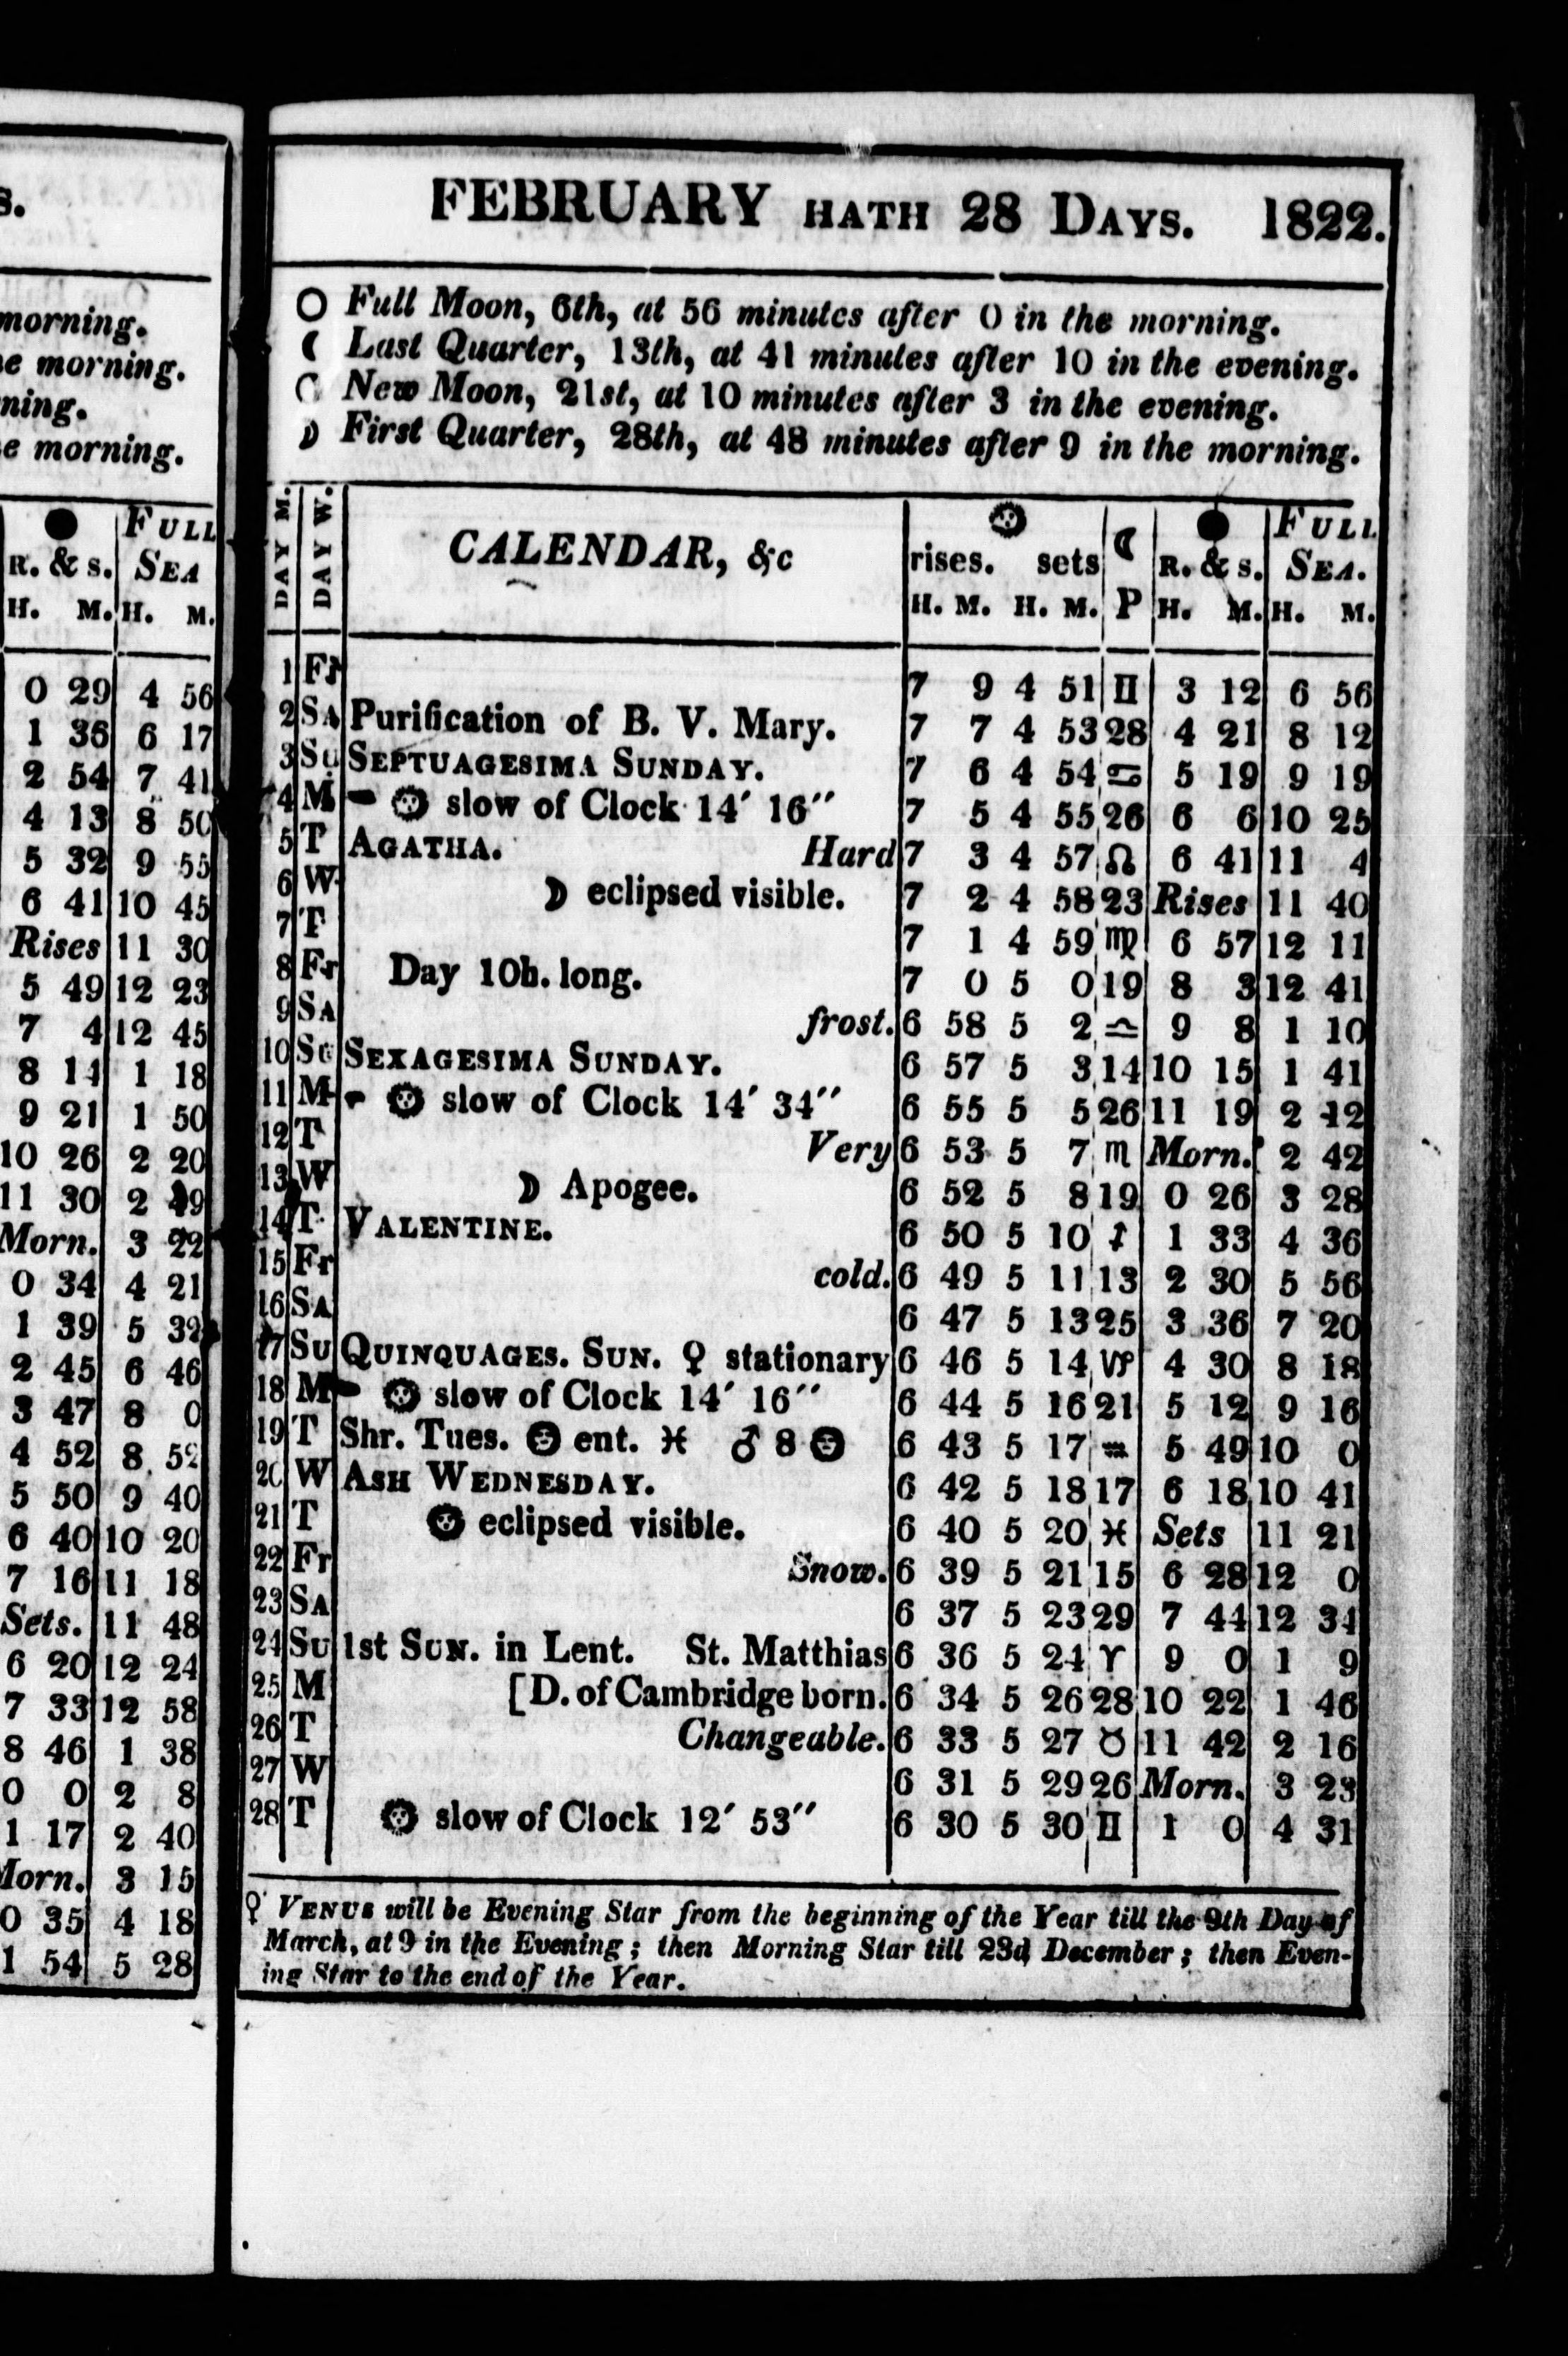 s.
morning.
e morning.
ning.
e morning.
● FULL
R. & s. SEA
H. M. H. M.
0 29 4 56
1 36 6 17
2 54 7 41
4 13 8 50
5 32 9 55
6 41 10 45
Rises 11 30
5 49 12 23
7 4 12 45
8 14 1 18
9 21 1 50
10 26 2 20
11 30 2 49
Morn. 3 22
0 34 4 21
1 39 5 32
2 45 6 46
3 47 8 0
4 52 8 52
5 50 9 40
6 40 10 20
7 16 11 18
Sets. 11 48
6 20 12 24
7 33 12 58
8 46 1 38
0 0 2 8
1 17 2 40
Morn. 3 15
0 35 4 18
1 54 5 28
FEBRUARY HATH 28 DAYS. 1822.
○ Full Moon, 6th, at 56 minutes after 0 in the morning.
☾ Last Quarter, 13th, at 41 minutes after 10 in the evening.
New Moon, 21st, at 10 minutes after 3 in the evening.
☽ First Quarter, 28th, at 48 minutes after 9 in the morning.
DAY M. DAY W. CALENDAR, &c ☉ rises. sets ☾ ● R. & s. FULL SEA.
H. M. H. M. P H. M. H. M.
1 Fr 7 9 4 51 ♊ 3 12 6 56
2 SA Purification of B. V. Mary. 7 7 4 53 28 4 21 8 12
3 SU SEPTUAGESIMA SUNDAY. 7 6 4 54 ♋ 5 19 9 19
4 M ☉ slow of Clock 14′ 16″ 7 5 4 55 26 6 6 10 25
5 T AGATHA. Hard 7 3 4 57 ♌ 6 41 11 4
6 W ☽ eclipsed visible. 7 2 4 58 23 Rises 11 40
7 T 7 1 4 59 ♍ 6 57 12 11
8 Fr Day 10h. long. 7 0 5 0 19 8 3 12 41
9 SA frost. 6 58 5 2 ♎ 9 8 1 10
10 SU SEXAGESIMA SUNDAY. 6 57 5 3 14 10 15 1 41
11 M ☉ slow of Clock 14′ 34″ 6 55 5 5 26 11 19 2 12
12 T Very 6 53 5 7 ♏ Morn. 2 42
13 W ☽ Apogee. 6 52 5 8 19 0 26 3 28
14 T VALENTINE. 6 50 5 10 ♐ 1 33 4 36
15 Fr cold. 6 49 5 11 13 2 30 5 56
16 SA 6 47 5 13 25 3 36 7 20
17 SU QUINQUAGES. SUN. ♀ stationary 6 46 5 14 ♑ 4 30 8 18
18 M ☉ slow of Clock 14′ 16″ 6 44 5 16 21 5 12 9 16
19 T Shr. Tues. ☉ ent. ♓ ♂ 8 ☉ 6 43 5 17 ♒ 5 49 10 0
20 W ASH WEDNESDAY. 6 42 5 18 17 6 18 10 41
21 T ☉ eclipsed visible. 6 40 5 20 ♓ Sets 11 21
22 Fr Snow. 6 39 5 21 15 6 28 12 0
23 SA 6 37 5 23 29 7 44 12 34
24 SU 1st SUN. in Lent. St. Matthias 6 36 5 24 ♈ 9 0 1 9
25 M [D. of Cambridge born. 6 34 5 26 28 10 22 1 46
26 T Changeable. 6 33 5 27 ♉ 11 42 2 16
27 W 6 31 5 29 26 Morn. 3 23
28 T ☉ slow of Clock 12′ 53″ 6 30 5 30 ♊ 1 0 4 31
♀ VENUS will be Evening Star from the beginning of the Year till the 9th Day of
March, at 9 in the Evening; then Morning Star till 23d December; then Even-
ing Star to the end of the Year.